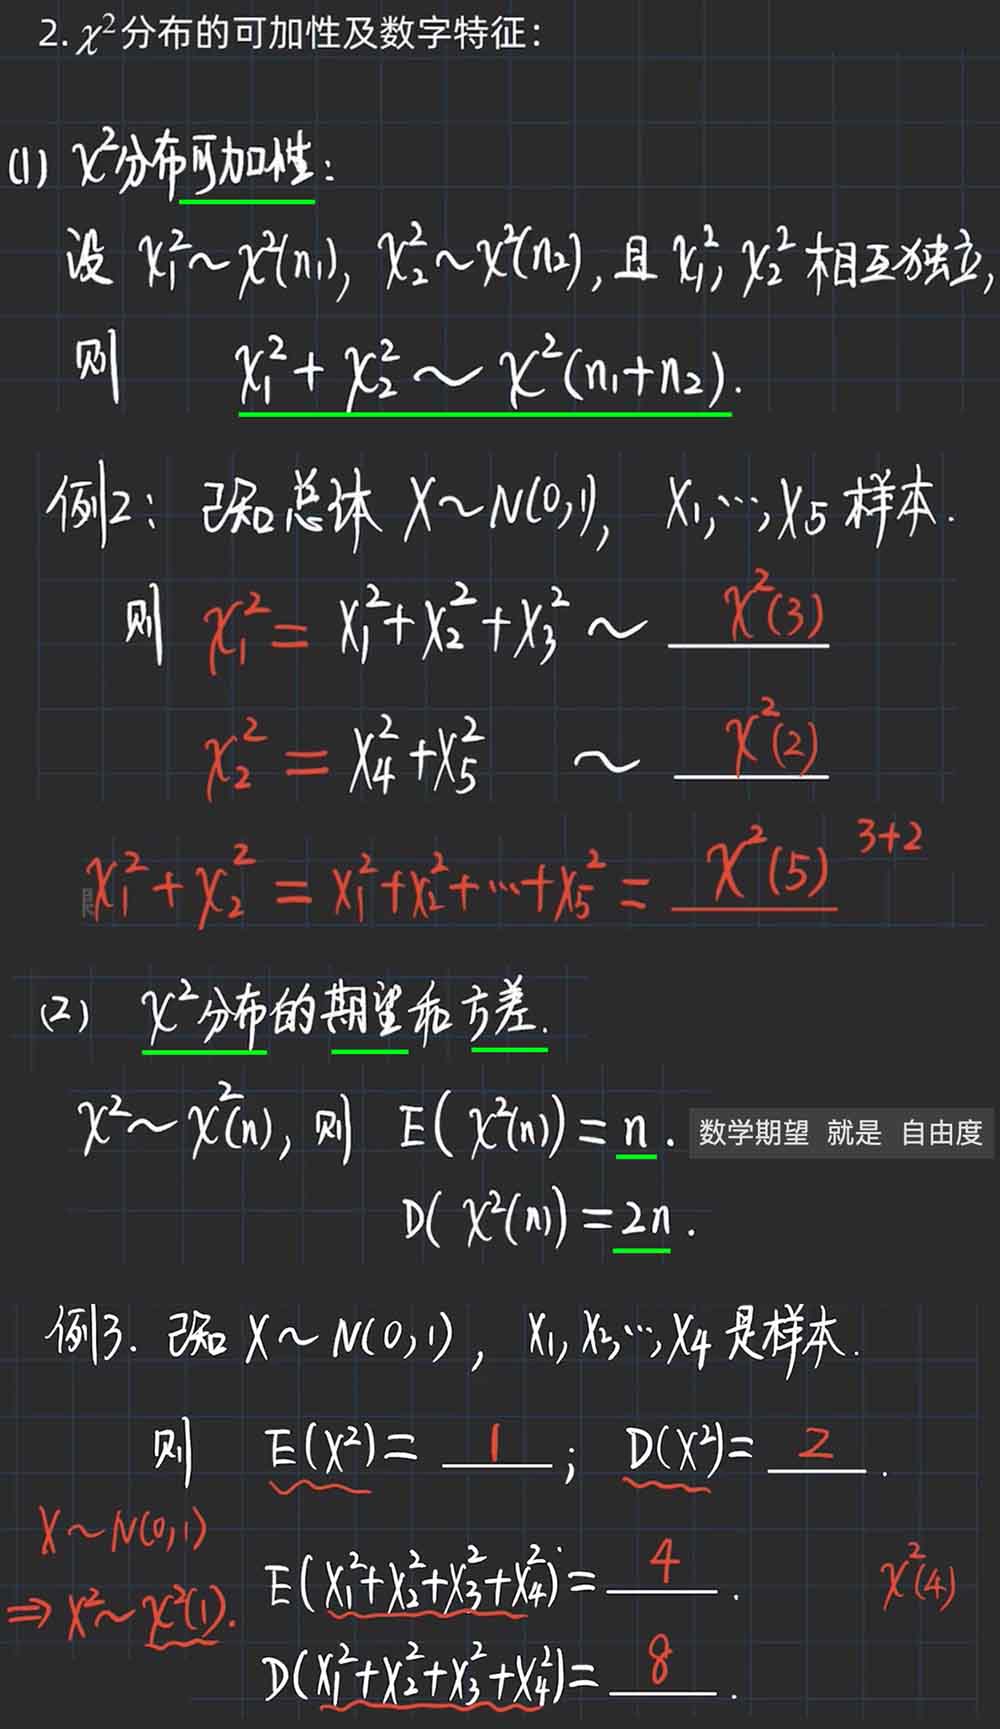 2. χ²分布的可加性及数字特征：
(1) χ²分布可加性：
设 χ₁²~χ²(n₁), χ₂²~χ²(n₂), 且 χ₁², χ₂² 相互独立,
则 χ₁²+χ₂²~χ²(n₁+n₂).
例2： 已知总体 X~N(0,1), X₁,…,X₅ 样本.
则 χ₁²= X₁²+X₂²+X₃² ~ χ²(3)
χ₂²= X₄²+X₅² ~ χ²(2)
χ₁²+χ₂² = X₁²+X₂²+…+X₅² = χ²(5) 3+2
(2) χ²分布的期望和方差.
χ²~χ²(n), 则 E(χ²(n))=n. 数学期望 就是 自由度
D(χ²(n))=2n.
例3. 已知 X~N(0,1), X₁,X₂,…,X₄ 是样本.
则 E(X²)= 1 ; D(X²)= 2 .
X~N(0,1)
⇒X²~χ²(1). E(X₁²+X₂²+X₃²+X₄²)= 4 . χ²(4)
D(X₁²+X₂²+X₃²+X₄²)= 8 .